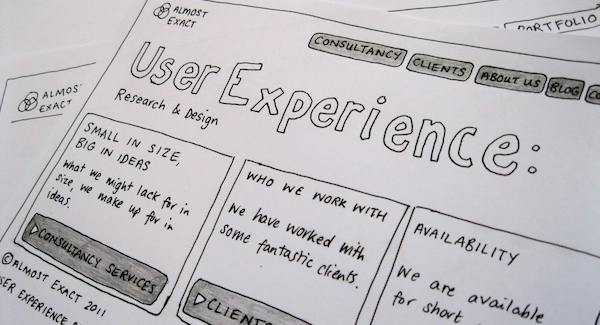 PORTFOLIO
ALMOST
EXACT
CONSULTANCY CLIENTS ABOUT US BLOG
User Experience:
Research & Design
ALMOST
EXACT
SMALL IN SIZE,
BIG IN IDEAS
What we might lack for in
size, we make up for in
ideas.
CONSULTANCY SERVICES
WHO WE WORK WITH
We have worked with
some fantastic clients.
CLIENTS
AVAILABILITY
We are available
for short
© ALMOST EXACT 2011
USER EXPERIENCE